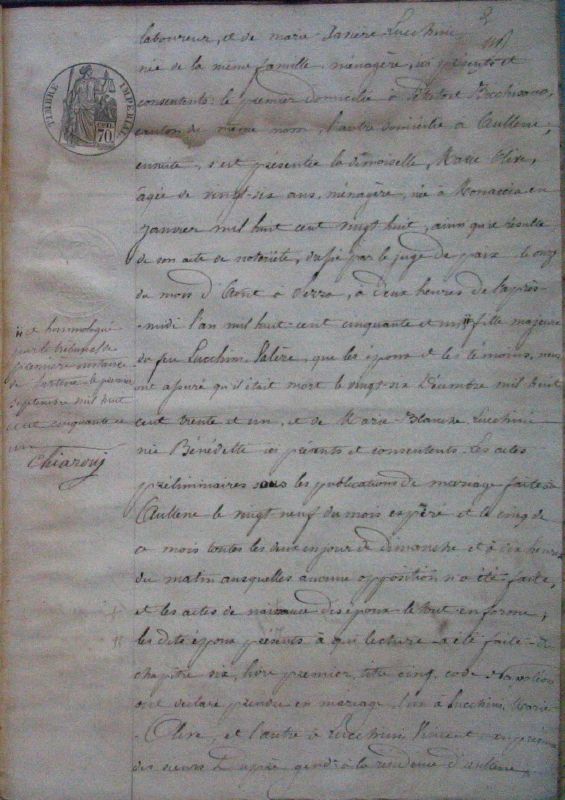 laboureur, et de marie Xaviere Lucchini
née de la même famille, ménagère, ici présents et
consentents, le premier domicilié à Petreto et Bicchisano,
canton de même nom, l'autre domiciliée à Aullene,
ensuite, s'est présentée la demoiselle, Marie Olive,
agée de vingt-six ans, ménagère, née à Monaccia en
janvier mil huit cent vingt huit, ainsi qu'il résulte
de son acte de notoriété, dressé par le juge de paix le onze
du mois d'Aout à Serra, à deux heures de l'après-
midi l'an mil huit-cent cinquante et un fille majeure
de feu Lucchini Valère, que les époux et les témoins, nous
ont assuré qu'il était mort le vingt-six Décembre mil huit
cent trente et un, et de Marie Blanche Lucchini
née Bénédette ici présents et consentents. Les actes
préliminaires sous les publications de mariage faites à
Aullene le vingt neuf du mois expiré et le cinq de
ce mois toutes les deux en jour de dimanche et à dix heures
du matin auxquelles aucune opposition n'a été faite,
et les actes de naissance des époux le tout en forme,
les dits époux présents à qui lecture a été faite du
chapitre six, livre premier, titre cinq, code Napoléon
ont déclaré prendre en mariage, l'un à Lucchini Marie
Olive, et l'autre à Lucchini Vincent en présence
des sieurs à la résidence d'aullene
TIMBRE IMPERIAL
70
et homologué
par le tribunal de
première instance
de Sartene le premier
septembre mil huit
cent cinquante et
un
Chiaroni